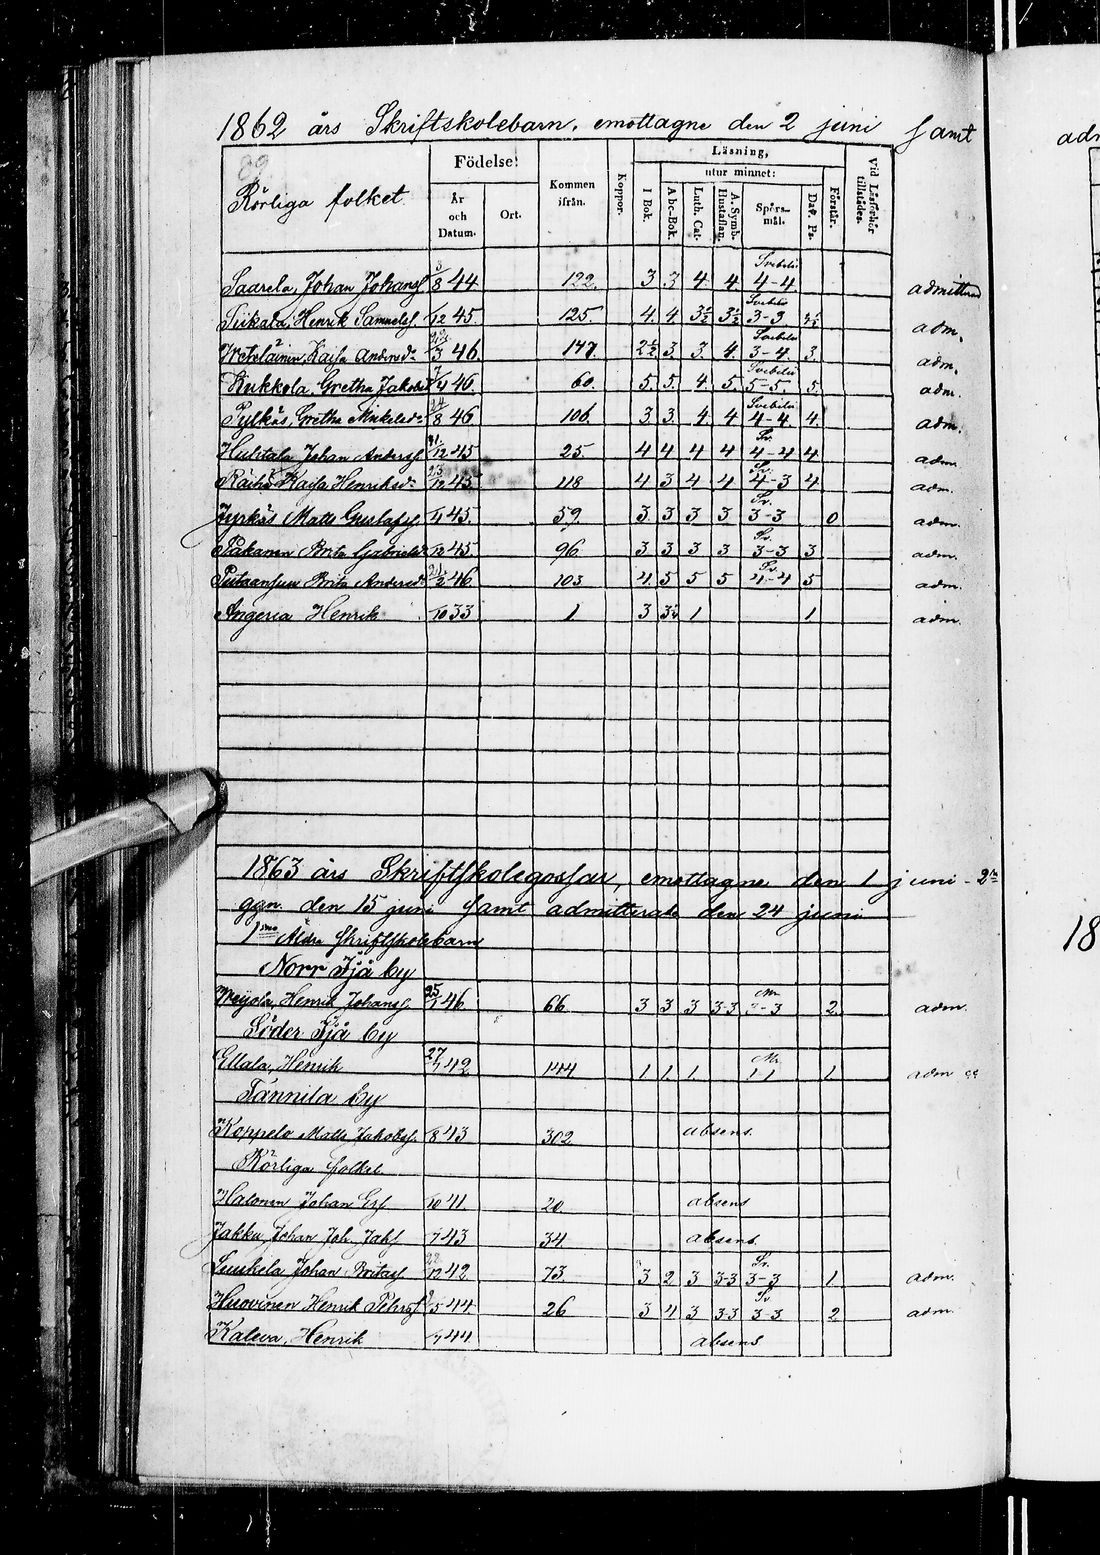 1862 års Skriftskolebarn, emottagne den 2 juni samt
89.
Rörliga folket
Födelse:
År och Datum.
Ort.
Kommen ifrån.
Koppor.
Läsning,
I Bok.
utur minnet:
Abc-Bok.
Luth. Cat.
A. Symb. Hustaflan.
Spörs-mål.
Dav. Ps.
Förstår.
Vid Läsförhör tillstädes.
Saarela, Johan Johanss. 3/8 44 122. 3 3 4 4 Svebelii 4-4 admitterad
Siikala, Henrik Samuelss. /12 45 125. 4. 4 3½ 3½ Svebelii 3-3 adm.
Kajsa Andersd. /3 46. 177. 2½ 3. 3. 4. Svebelii 3-4. 3. adm.
Kukkola, Gretha Jakobsd. 7/4 46. 60. 5. 5. 4. 5. Svebelii 5-5. 5. adm.
Pylkäs, Gretha Mickelsd. 24/8 46 106. 3 3. 4. 4 Svebelii 4-4. 4. adm.
Huhtala Johan Anderss. 31/12 45 25. 4 4 4 4 Sv. 4-4 4. adm.
Räihä Kajsa Henriksd. 23/12 45. 118 4 3 4 4 Sv. 4-3 4 adm.
Jyrkäs Matts Gustafss. /4 45. 59. 3. 3 3 3. Sv. 3-3 0 adm.
Pakanen Brita Gabrielsd. /12 45 96 3 3 3 3 Sv. 3-3 3 adm.
Brita Andersd. 21/2 46. 103 4. 5 5 5 Sv. 4-4 5 adm.
Angeria Henrik /10 33 1 3 3½ 1 1 adm.
1863 års Skriftskolegossar, emottagne den 1 juni - 2dra
ggn. den 15 juni samt admitterade den 24 juni
1mo Äldre skriftskolebarn
Norr Ijå by
Weijola, Henrik Johanss. 25/1 46. 66 3 3 3 3-3 3-3 2. adm.
Söder Ijå by
Ellala, Henrik 27/7 42 144 1 1. 1. 1-1 1. adm
Tannila by
Koppelo Matts Jakobss. /8 43 302 absens.
Rörliga folket
Halonen Johan Ers. /10 41. 20 absens
Jakku, Johan Joh. Jaks. /7 43 34 absens.
Johan Britas. 22/12 42 73 3 2 3 3-3 Sv. 3-3 1 adm.
Huovinen Henrik Pehrss. /5 44 26 3 4 3 3-3 Sv. 3-3 2 adm.
Kaleva, Henrik /7 44. absens